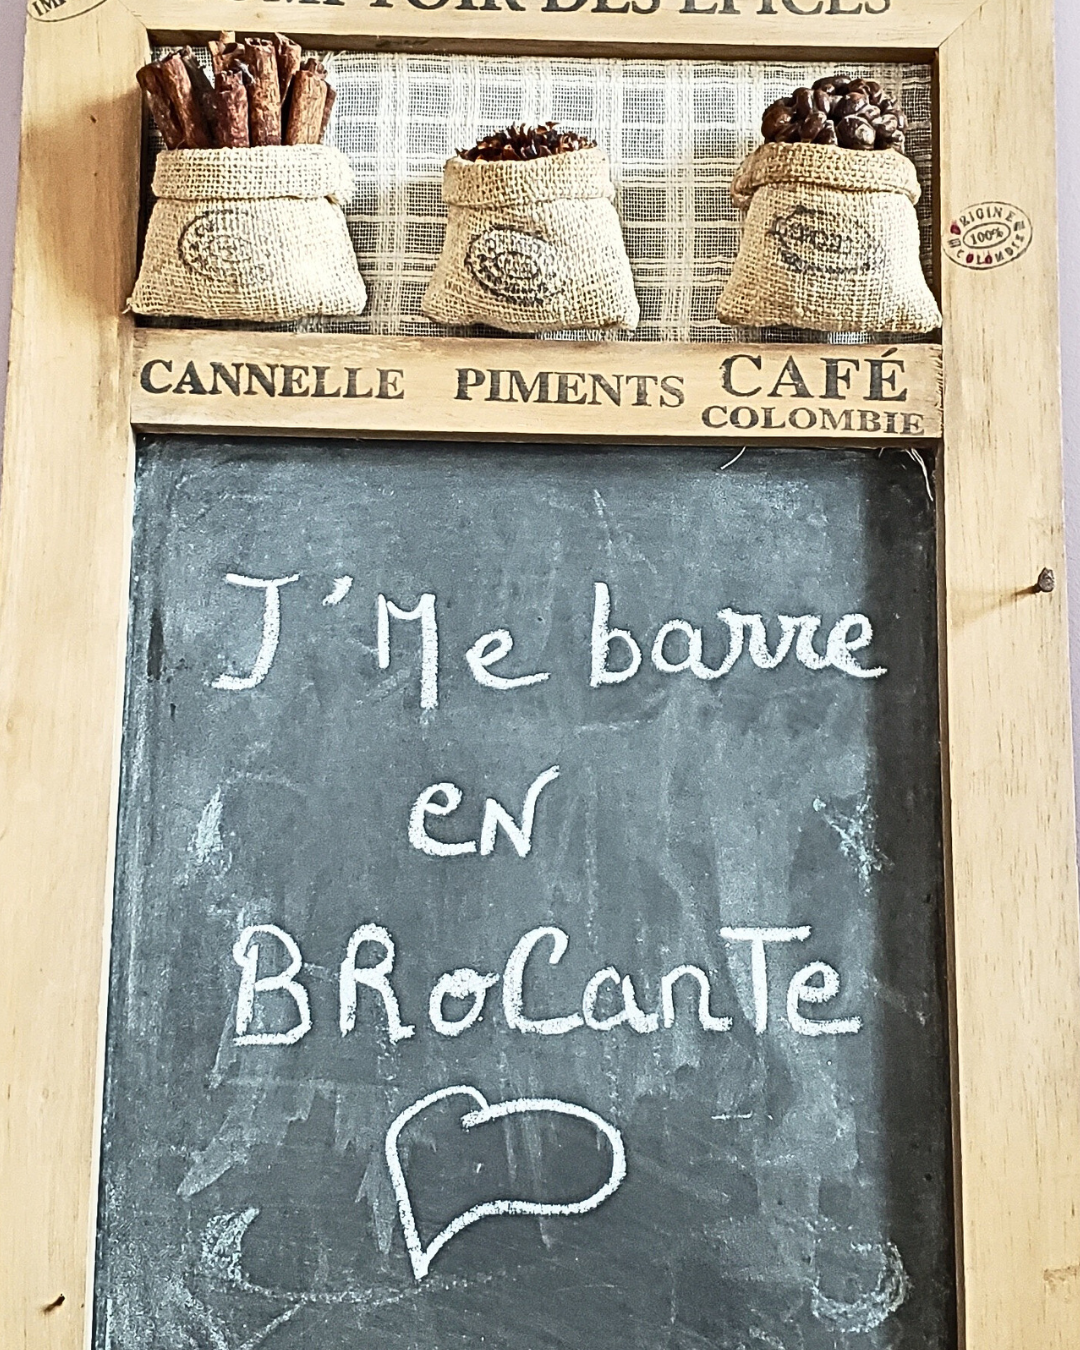 DES ÉPICES
ORIGINE
100%
COLOMBIE
CANNELLE PIMENTS CAFÉ
COLOMBIE
J'Me barre
eN
BRoCanTe